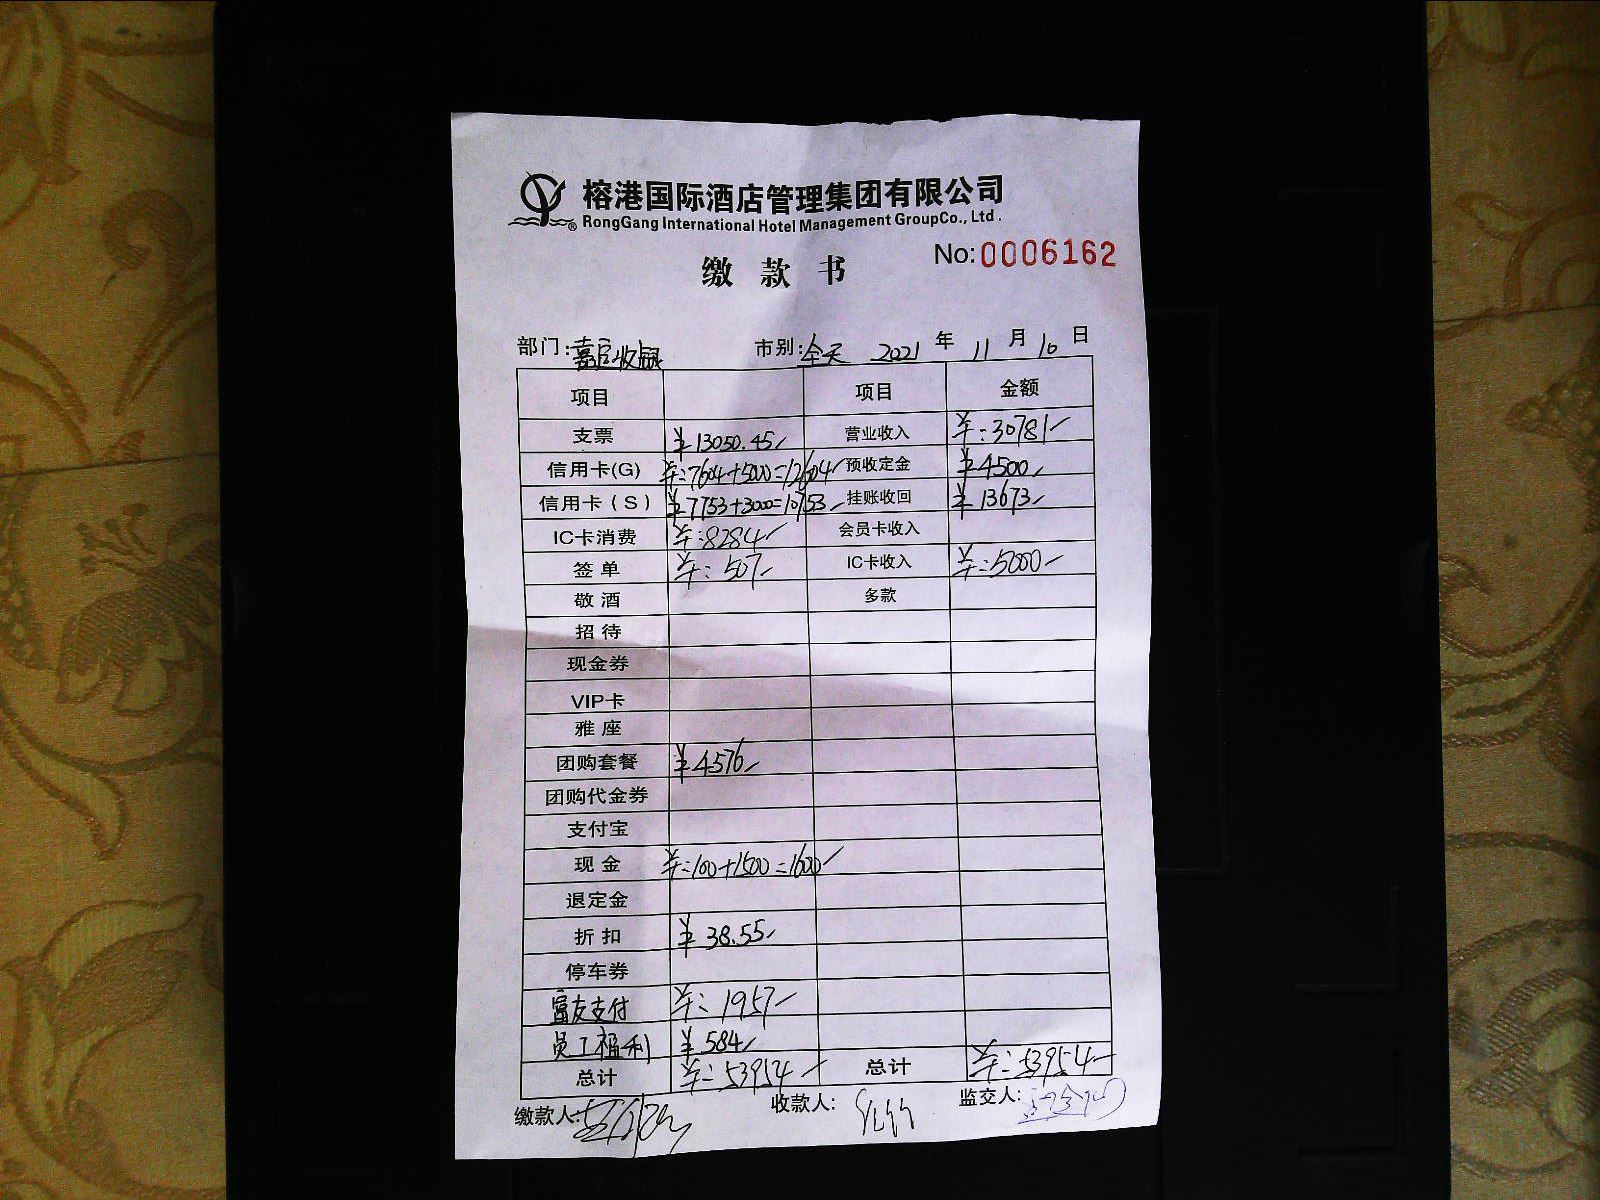 榕港国际酒店管理集团有限公司
RongGang International Hotel Management GroupCo., Ltd.
No:0006162
缴款书
部门: 市别:全天 2021 年 11 月 10 日
项目 项目 金额
支票 ¥13050.45 营业收入 ¥:30781
信用卡(G) ¥:7604+5000=12604 预收定金 ¥4500
信用卡(S) ¥7753+3000=10753 挂账收回 ¥13673
IC卡消费 ¥:8284 会员卡收入
签单 ¥:507 IC卡收入 ¥:5000
敬酒 多款
招待
现金券
VIP卡
雅座
团购套餐 ¥4576
团购代金券
支付宝
现金 ¥:100+1500=1600
退定金
折扣 ¥38.55
停车券
富友支付 ¥:1957
员工福利 ¥584
总计 ¥:53954 总计 ¥:53954
缴款人: 收款人: 监交人: